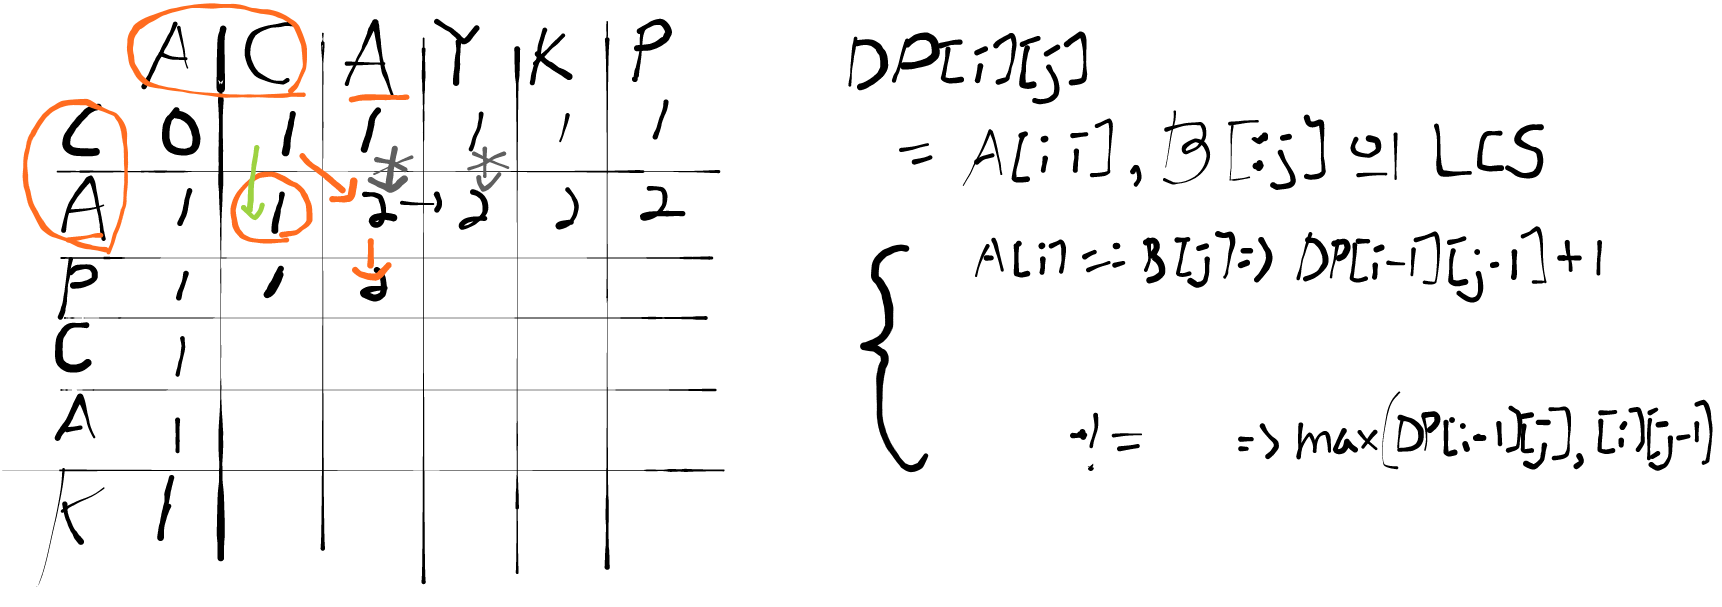 A C A Y K P
C 0 1 1 1 1 1
A 1 1 2 → 2 2 2
P 1 1 2
C 1
A 1
K 1
DP[i][j]
= A[:i], B[:j]의 LCS
A[i] == B[j] => DP[i-1][j-1]+1
!= => max(DP[i-1][j], [i][j-1)